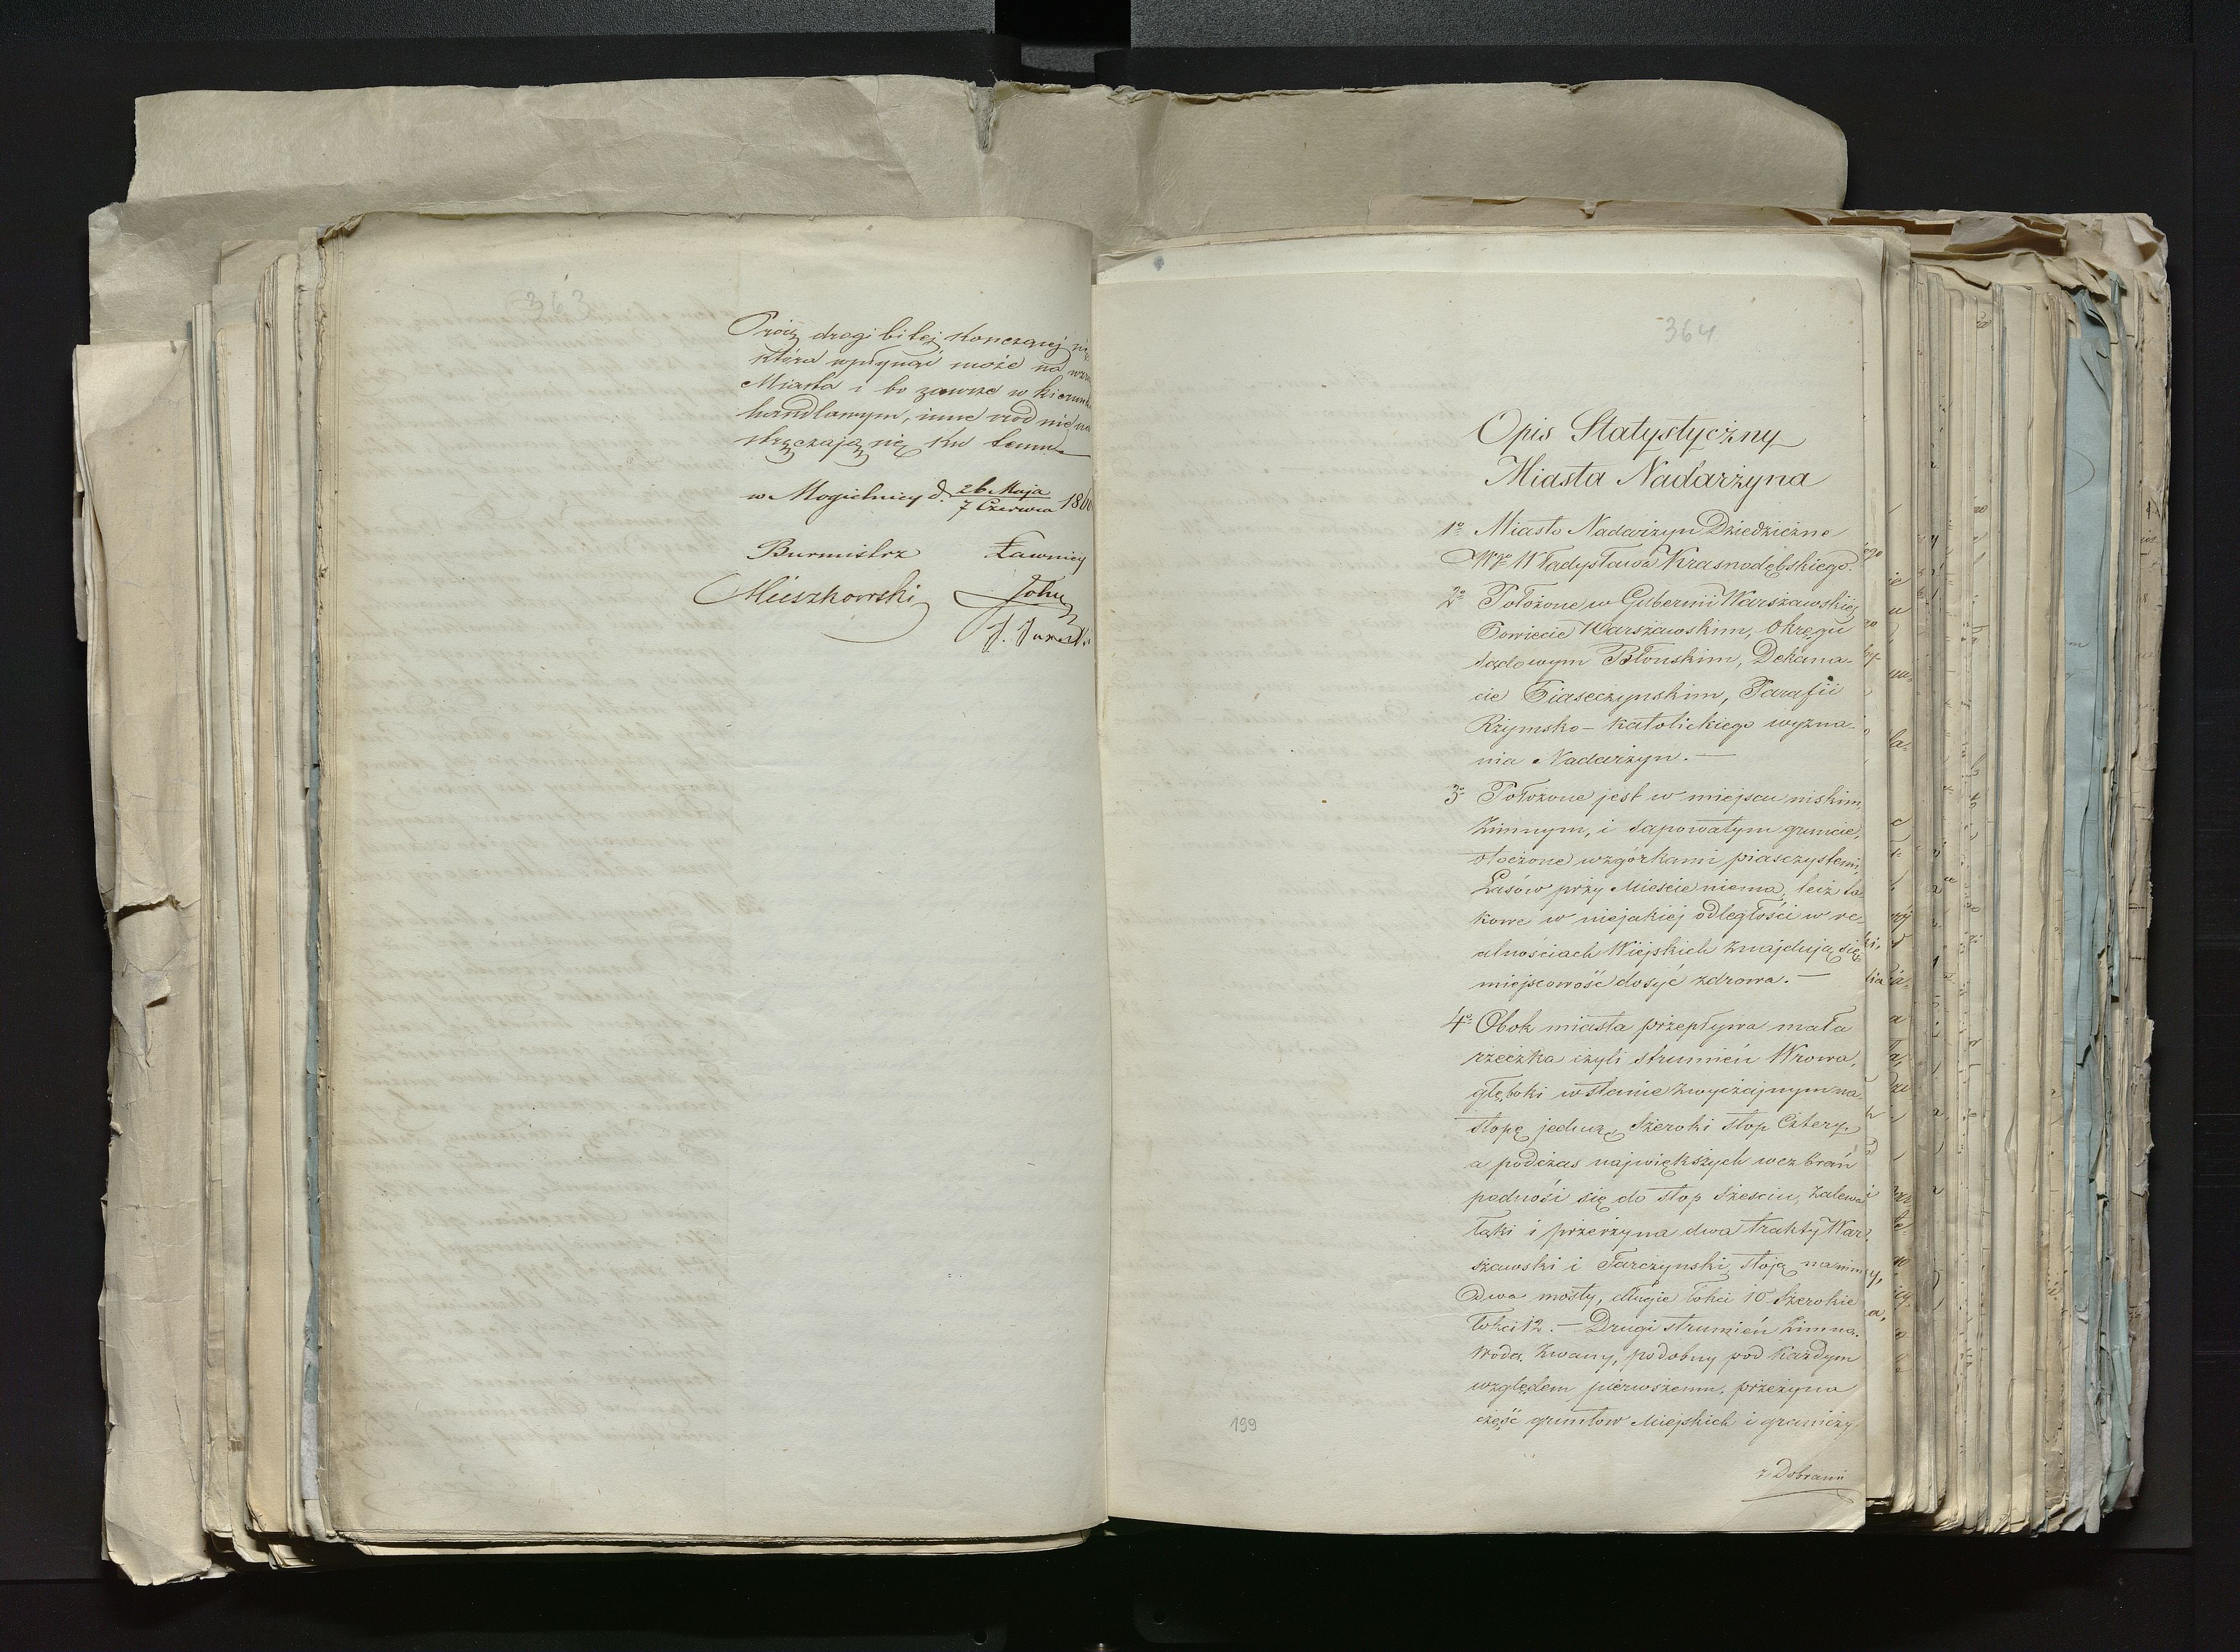 363
Prócz drogi bitej kończącej się
która wpłynąć może na wzro
Miasta i to zawsze w kierunku
handlowym, inne źródła nie na
stręczają się ku temu
w Mogielnicy d. 26 Maja / 7 Czerwca 1860
Burmistrz Ławnicy
Mieszkowski
364
Opis Statystyczny
Miasta Nadarzyna
1o Miasto Nadarzyn Dziedziczne
Wgo Władysława Krasnodębskiego.
2o Położone w Gubernii Warszawskiej
Powiecie Warszawskim, Okręgu
Sądowym Błonskim, Dekana-
cie Piaseczynskim, Parafii
Rzymsko-katolickiego wyzna-
nia Nadarzyn. —
3o Położone jest w miejscu niskim,
zimnym, i sapowatym gruncie,
otoczone wzgórkami piasczystemi,
Lasów przy Mieście niema, lecz ta
kowe w niejakiej odległości w re
alnościach Wiejskich znajdują się
miejscowość dosyć zdrowa. —
4o Obok miasta przepływa mała
rzeczka czyli strumień Wrowa,
głęboki w stanie zwyczajnym na
stopę jedną, szeroki stop Cztery,
a podczas największych wezbrań
podnosi się do stop sześciu, zalewa
łąki i przerzyna dwa trakty War-
szawski i Tarczynski, stoją na nim
dwa mosty, długie łokci 10 szerokie
łokci 12. — Drugi strumień Zimna-
Woda zwany, podobny pod każdym
względem pierwszemu, przezyna
część gruntów Miejskich i graniczy
z Dobrami
199